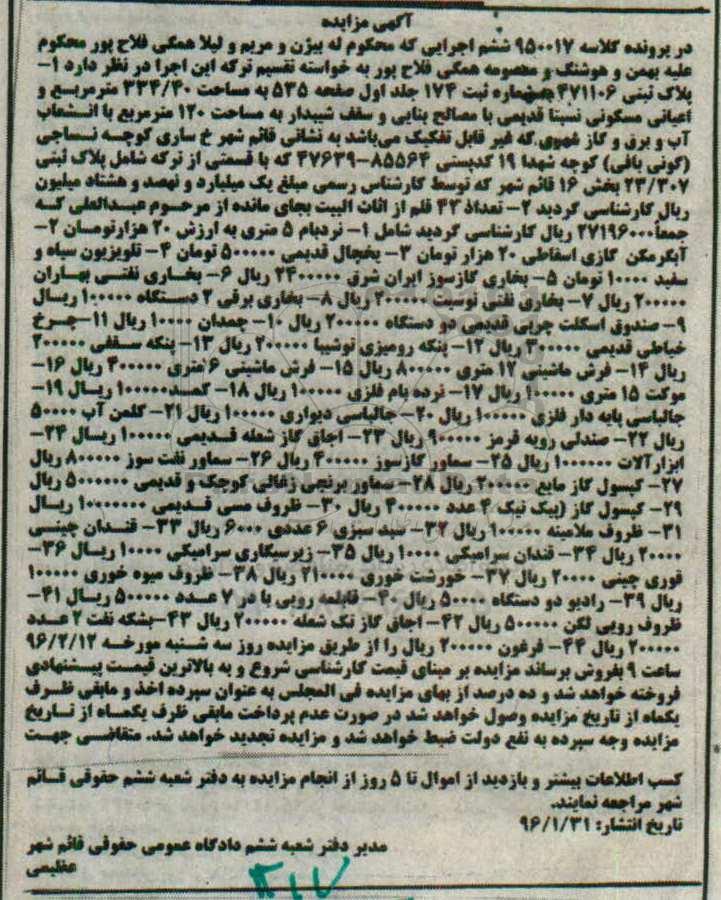 آگهی مزایده
در پرونده کلاسه ۹۵۰۰۱۷ ششم اجرایی که محکوم له بیژن و مریم و لیلا همگی فلاح پور محکوم
علیه بهمن و هوشنگ و معصومه همگی فلاح پور به خواسته تقسیم ترکه این اجرا در نظر دارد ۱-
پلاک ثبتی ۴۷۱۱۰۶ شماره ثبت ۱۷۴ جلد اول صفحه ۵۳۵ به مساحت ۳۳۴/۴۰ مترمربع و
اعیانی مسکونی نسبتا قدیمی با مصالح بنایی و سقف شیبدار به مساحت ۱۲۰ مترمربع با انشعاب
آب و برق و گاز شهری که غیر قابل تفکیک می‌باشد به نشانی قائم شهر خ ساری کوچه نساجی
(گونی بافی) کوچه شهدا ۱۹ کدپستی ۸۵۵۶۴-۴۷۶۳۹ که با قسمتی از ترکه شامل پلاک ثبتی
۲۳/۳۰۷ بخش ۱۶ قائم شهر که توسط کارشناس رسمی مبلغ یک میلیارد و نهصد و هشتاد میلیون
ریال کارشناسی گردید ۲- تعداد ۴۳ قلم از اثاث البیت بجای مانده از مرحوم عبدالعلی که
جمعا ۲۷۱۹۶۰۰۰ ریال کارشناسی گردید شامل ۱- نردبام ۵ متری به ارزش ۲۰ هزارتومان ۲-
آبگرمکن گازی اسقاطی ۲۰ هزار تومان ۳- یخچال قدیمی ۵۰۰۰۰۰ تومان ۴- تلویزیون سیاه و
سفید ۱۰۰۰۰ تومان ۵- بخاری گازسوز ایران شرق ۲۴۰۰۰۰۰ ریال ۶- بخاری نفتی بهاران
۲۰۰۰۰۰ ریال ۷- بخاری نفتی توسیت ۲۰۰۰۰۰ ریال ۸- بخاری برقی ۲ دستگاه ۱۰۰۰۰۰ ریال
۹- صندوق اسکلت چربی قدیمی دو دستگاه ۲۰۰۰۰۰ ریال ۱۰- چمدان ۱۰۰۰۰ ریال ۱۱- چرخ
خیاطی قدیمی ۳۰۰۰۰۰ ریال ۱۲- پنکه رومیزی توشیبا ۲۰۰۰۰۰ ریال ۱۳- پنکه سقفی ۲۰۰۰۰۰
ریال ۱۴- فرش ماشینی ۱۲ متری ۸۰۰۰۰۰ ریال ۱۵- فرش ماشینی ۶ متری ۴۰۰۰۰۰ ریال ۱۶-
موکت ۱۵ متری ۱۰۰۰۰۰ ریال ۱۷- نرده بام فلزی ۱۰۰۰۰۰ ریال ۱۸- کمد ۱۰۰۰۰۰ ریال ۱۹-
جالباسی پایه دار فلزی ۱۰۰۰۰۰ ریال ۲۰- جالباسی دیواری ۱۰۰۰۰۰ ریال ۲۱- کلمن آب ۵۰۰۰۰
ریال ۲۲- صندلی رویه قرمز ۹۰۰۰۰۰ ریال ۲۳- اجاق گاز شعله قدیمی ۱۰۰۰۰۰ ریال ۲۴-
ابزارآلات ۱۰۰۰۰۰۰ ریال ۲۵- سماور گازسوز ۴۰۰۰۰۰ ریال ۲۶- سماور نفت سوز ۸۰۰۰۰۰ ریال
۲۷- کپسول گاز مایع ۲۰۰۰۰۰ ریال ۲۸- سماور برنجی زغالی کوچک و قدیمی ۵۰۰۰۰۰۰ ریال
۲۹- کپسول گاز (پیک نیک ۴ عدد ۴۰۰۰۰۰ ریال ۳۰- ظروف مسی قدیمی ۱۰۰۰۰۰۰۰ ریال
۳۱- ظروف ملامینه ۱۰۰۰۰۰ ریال ۳۲- سبد سبزی ۶ عددی ۶۰۰۰ ریال ۳۳- قندان چینی
۲۰۰۰۰ ریال ۳۴- قندان سرامیکی ۱۰۰۰۰ ریال ۳۵- زیرسیگاری سرامیکی ۱۰۰۰۰ ریال ۳۶-
قوری چینی ۲۰۰۰۰ ریال ۳۷- خورشت خوری ۲۱۰۰۰۰ ریال ۳۸- ظروف میوه خوری ۱۰۰۰۰۰
ریال ۳۹- رادیو دو دستگاه ۵۰۰۰۰ ریال ۴۰- قابلمه رویی با در ۷ عدد ۵۰۰۰۰۰ ریال ۴۱-
ظروف رویی لگن ۵۰۰۰۰۰ ریال ۴۲- اجاق گاز تک شعله ۲۰۰۰۰۰ ریال ۴۳- بشکه نفت ۲ عدد
۲۰۰۰۰۰ ریال ۴۴- فرغون ۲۰۰۰۰۰ ریال را از طریق مزایده روز سه شنبه مورخه ۹۶/۲/۱۲
ساعت ۹ بفروش برساند مزایده بر مبنای قیمت کارشناسی شروع و به بالاترین قیمت پیشنهادی
فروخته خواهد شد و ده درصد از بهای مزایده فی المجلس به عنوان سپرده اخذ و مابقی ظرف
یکماه از تاریخ مزایده وصول خواهد شد در صورت عدم پرداخت مابقی ظرف یکماه از تاریخ
مزایده وجه سپرده به نفع دولت ضبط خواهد شد و مزایده تجدید خواهد شد. متقاضی جهت
کسب اطلاعات بیشتر و بازدید از اموال تا ۵ روز از انجام مزایده به دفتر شعبه ششم حقوقی قائم
شهر مراجعه نمایند.
تاریخ انتشار: ۹۶/۱/۳۱
مدیر دفتر شعبه ششم دادگاه عمومی حقوقی قائم شهر
عظیمی